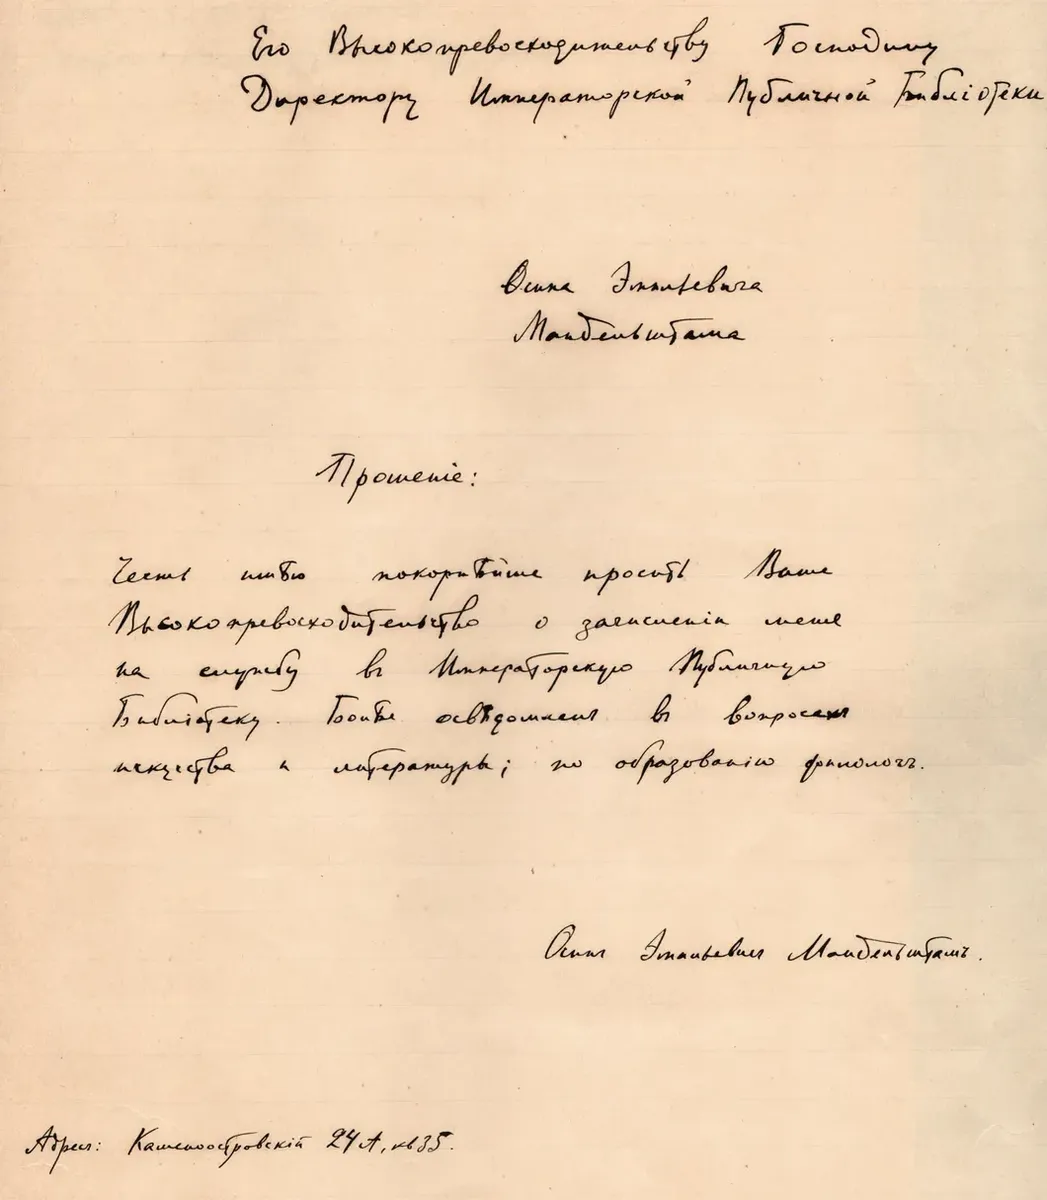 Его Высокопревосходительству Господину
Директору Императорской Публичной Библіотеки
Осипа Эмильевича
Мандельштама
Прошеніе:
Честь имѣю покорнѣйше просить Ваше
Высокопревосходительство о зачисленіи меня
на службу въ Императорскую Публичную
Библіотеку. Болѣе освѣдомленъ въ вопросахъ
искусства и литературы; по образованію филологъ.
Осипъ Эмильевичъ Мандельштамъ.
Адресъ: Каменноостровскій 24А, кв 35.